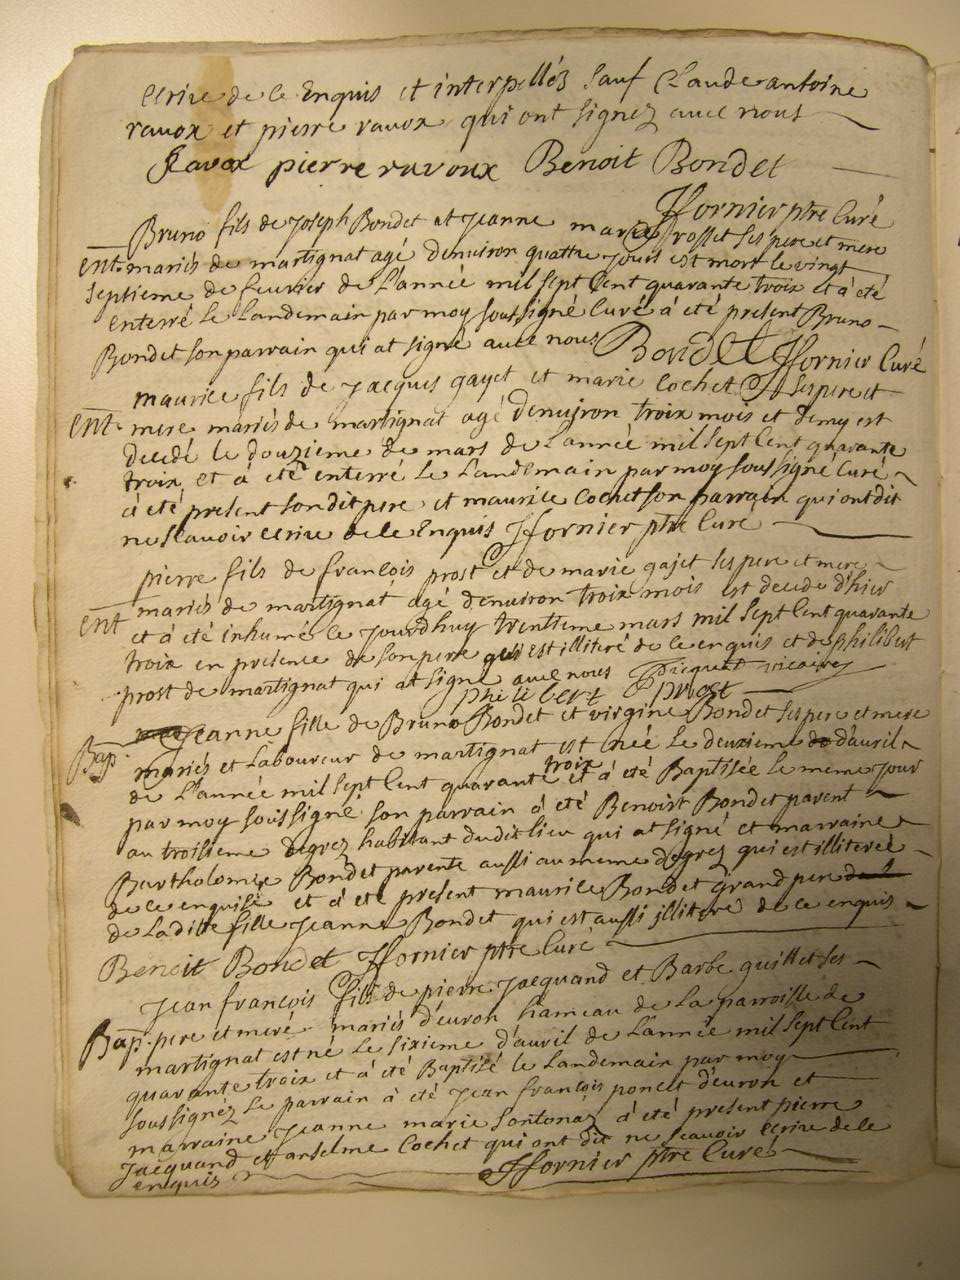 ecrire de ce Enquis et interpellés sauf Claude antoine
ravox et pierre ravox qui ont signez avec nous
Ravox pierre ravoux Benoit Bondet
JFornier ptre Curé
Bruno fils de Joseph Bondet et Jeanne marie rosset ses pere et mere
ent. mariés de martignat agé denuiron quattre jours est mort le vingt
septieme de feurier de L'année mil sept Cent quarante troix et à été
enterré Le Landemain par moy soussigné Curé à été present Bruno
Bondet son parrain qui at signé avec nous Bondet JFornier Curé
maurice fils de Jacques gayet et marie Cochet ses pere et
ent. mere mariés de martignat agé denuiron troix mois et demy est
decédé le douzieme de mars de L'année mil sept Cent quarante
troix et à été enterré Le Landemain par moy soussigné Curé
à été present son dit pere et maurice Cochet son parrain qui ont dit
ne scavoir ecrire de le Enquis JFornier ptre Curé
pierre fils de françois prost et de marie gajet ses pere et mere
ent mariés de martignat agé denuiron troix mois est decede d'hier
et à été inhumé le jourdhuy trentieme mars mil sept Cent quarante
troix en presence de son pere qui est illiteré de ce enquis et de philibert
prost de martignat qui at signé avec nous Picquet vicaire
philibert prost
Jeanne fille de Bruno Bondet et virgine Bondet ses pere et mere
Bap. mariés et Laboureur de martignat est née Le deuxieme d'auril
de L'année mil sept Cent quarante troix et à été Baptisée Le meme Jour
par moy soussigné son parrain à été Benoist Bondet parent
au troisieme degrez habitant dudit lieu qui at signé et marraine
Bartholomie Bondet parente aussi au meme degrez qui est illiterée
de ce enquise et à été present maurice Bondet grand pere
de Laditte fille Jeanne Bondet qui est aussi jlliteré de ce enquis
Benoit Bondet JFornier ptre Curé
Jean françois fils de pierre Jacquand et Barbe quillet ses
Bap. pere et mere mariés d'euron hameau de La parroisse de
martignat est né Le sixieme d'auril de L'année mil sept Cent
quarante troix et à été Baptisé le Landemain par moy
soussignéz Le parrain à été Jean françois poncet d'euron et
marraine Jeanne marie sontonaz à été present pierre
Jacquand et anselme Cochet qui ont dit ne scavoir ecrire de le
enquis JFornier ptre Curé